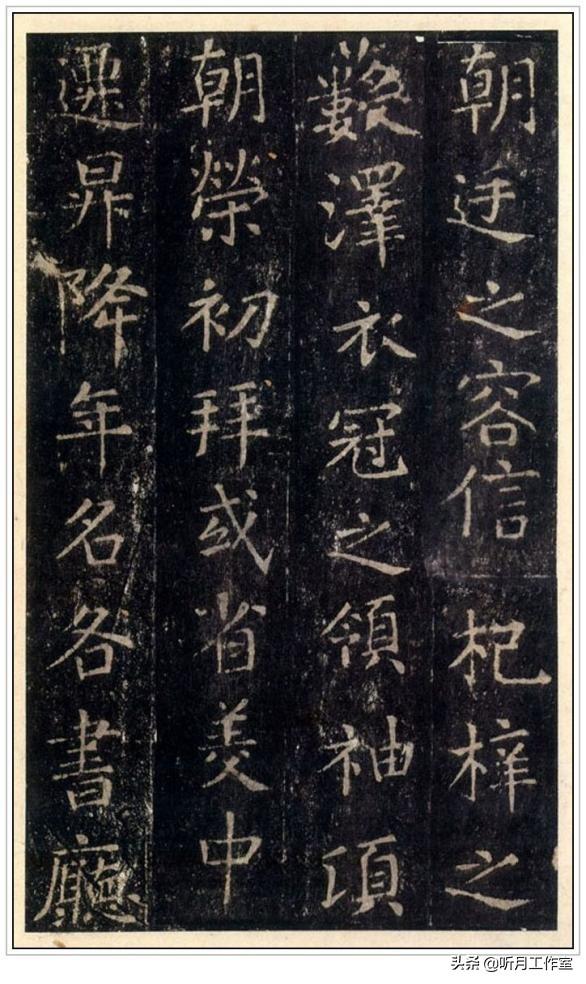 朝廷之容信杞梓之
藪澤衣冠之領袖項
朝榮初拜或省美中
遷昇降年名各書廳
头条 @听月工作室